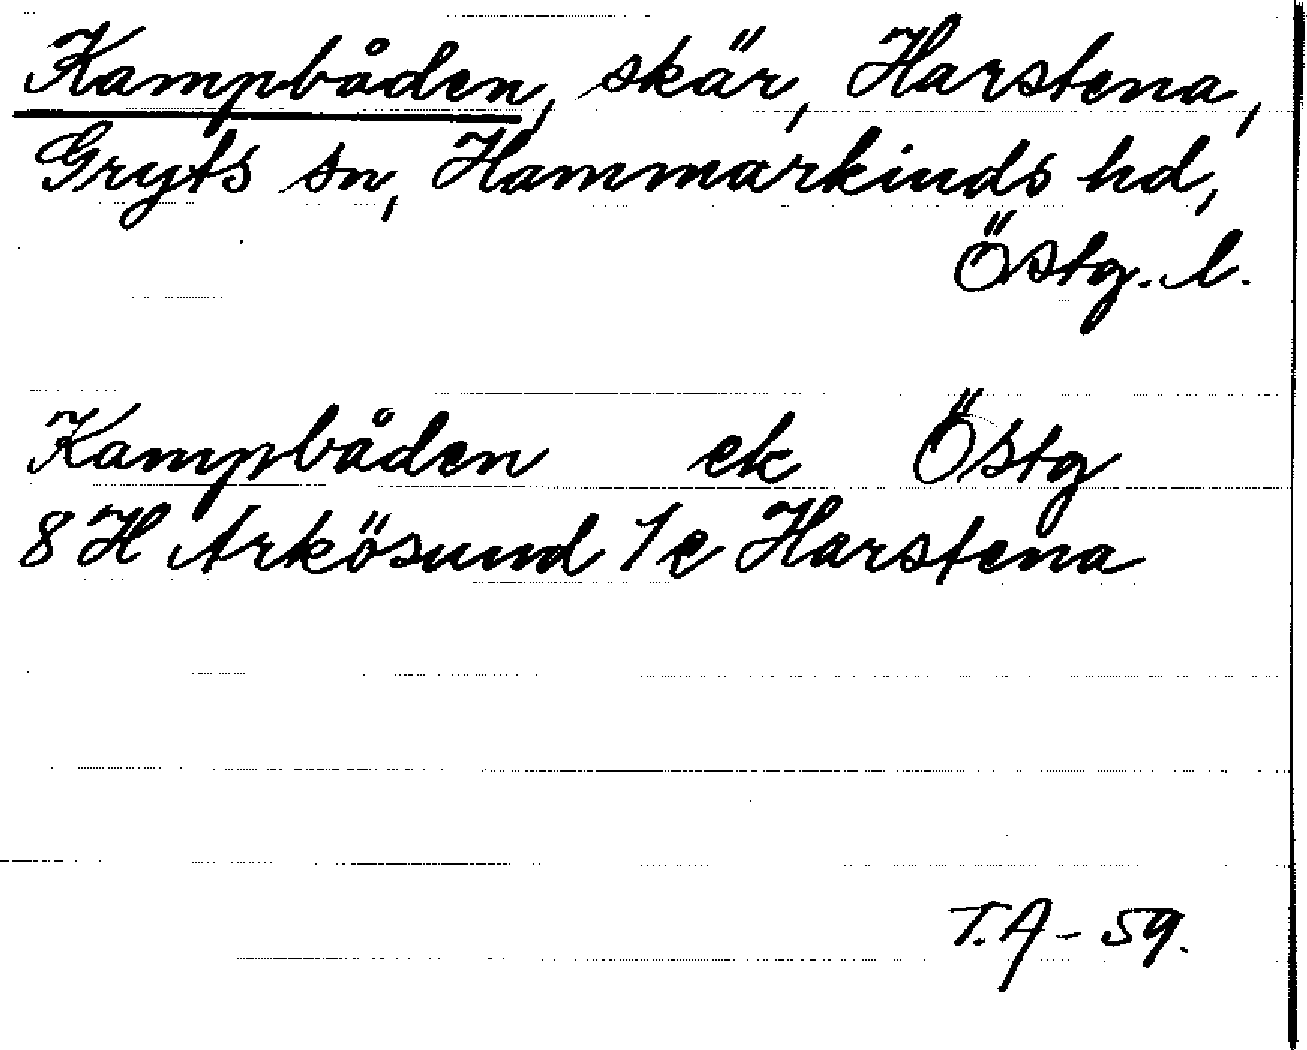 Kampbåden, skär, Harstena,
Gryts sn, Hammarkinds hd,
Östg. l.
Kampbåden ek Östg
8 H Arkösund 1 e Harstena
T.A - 59.